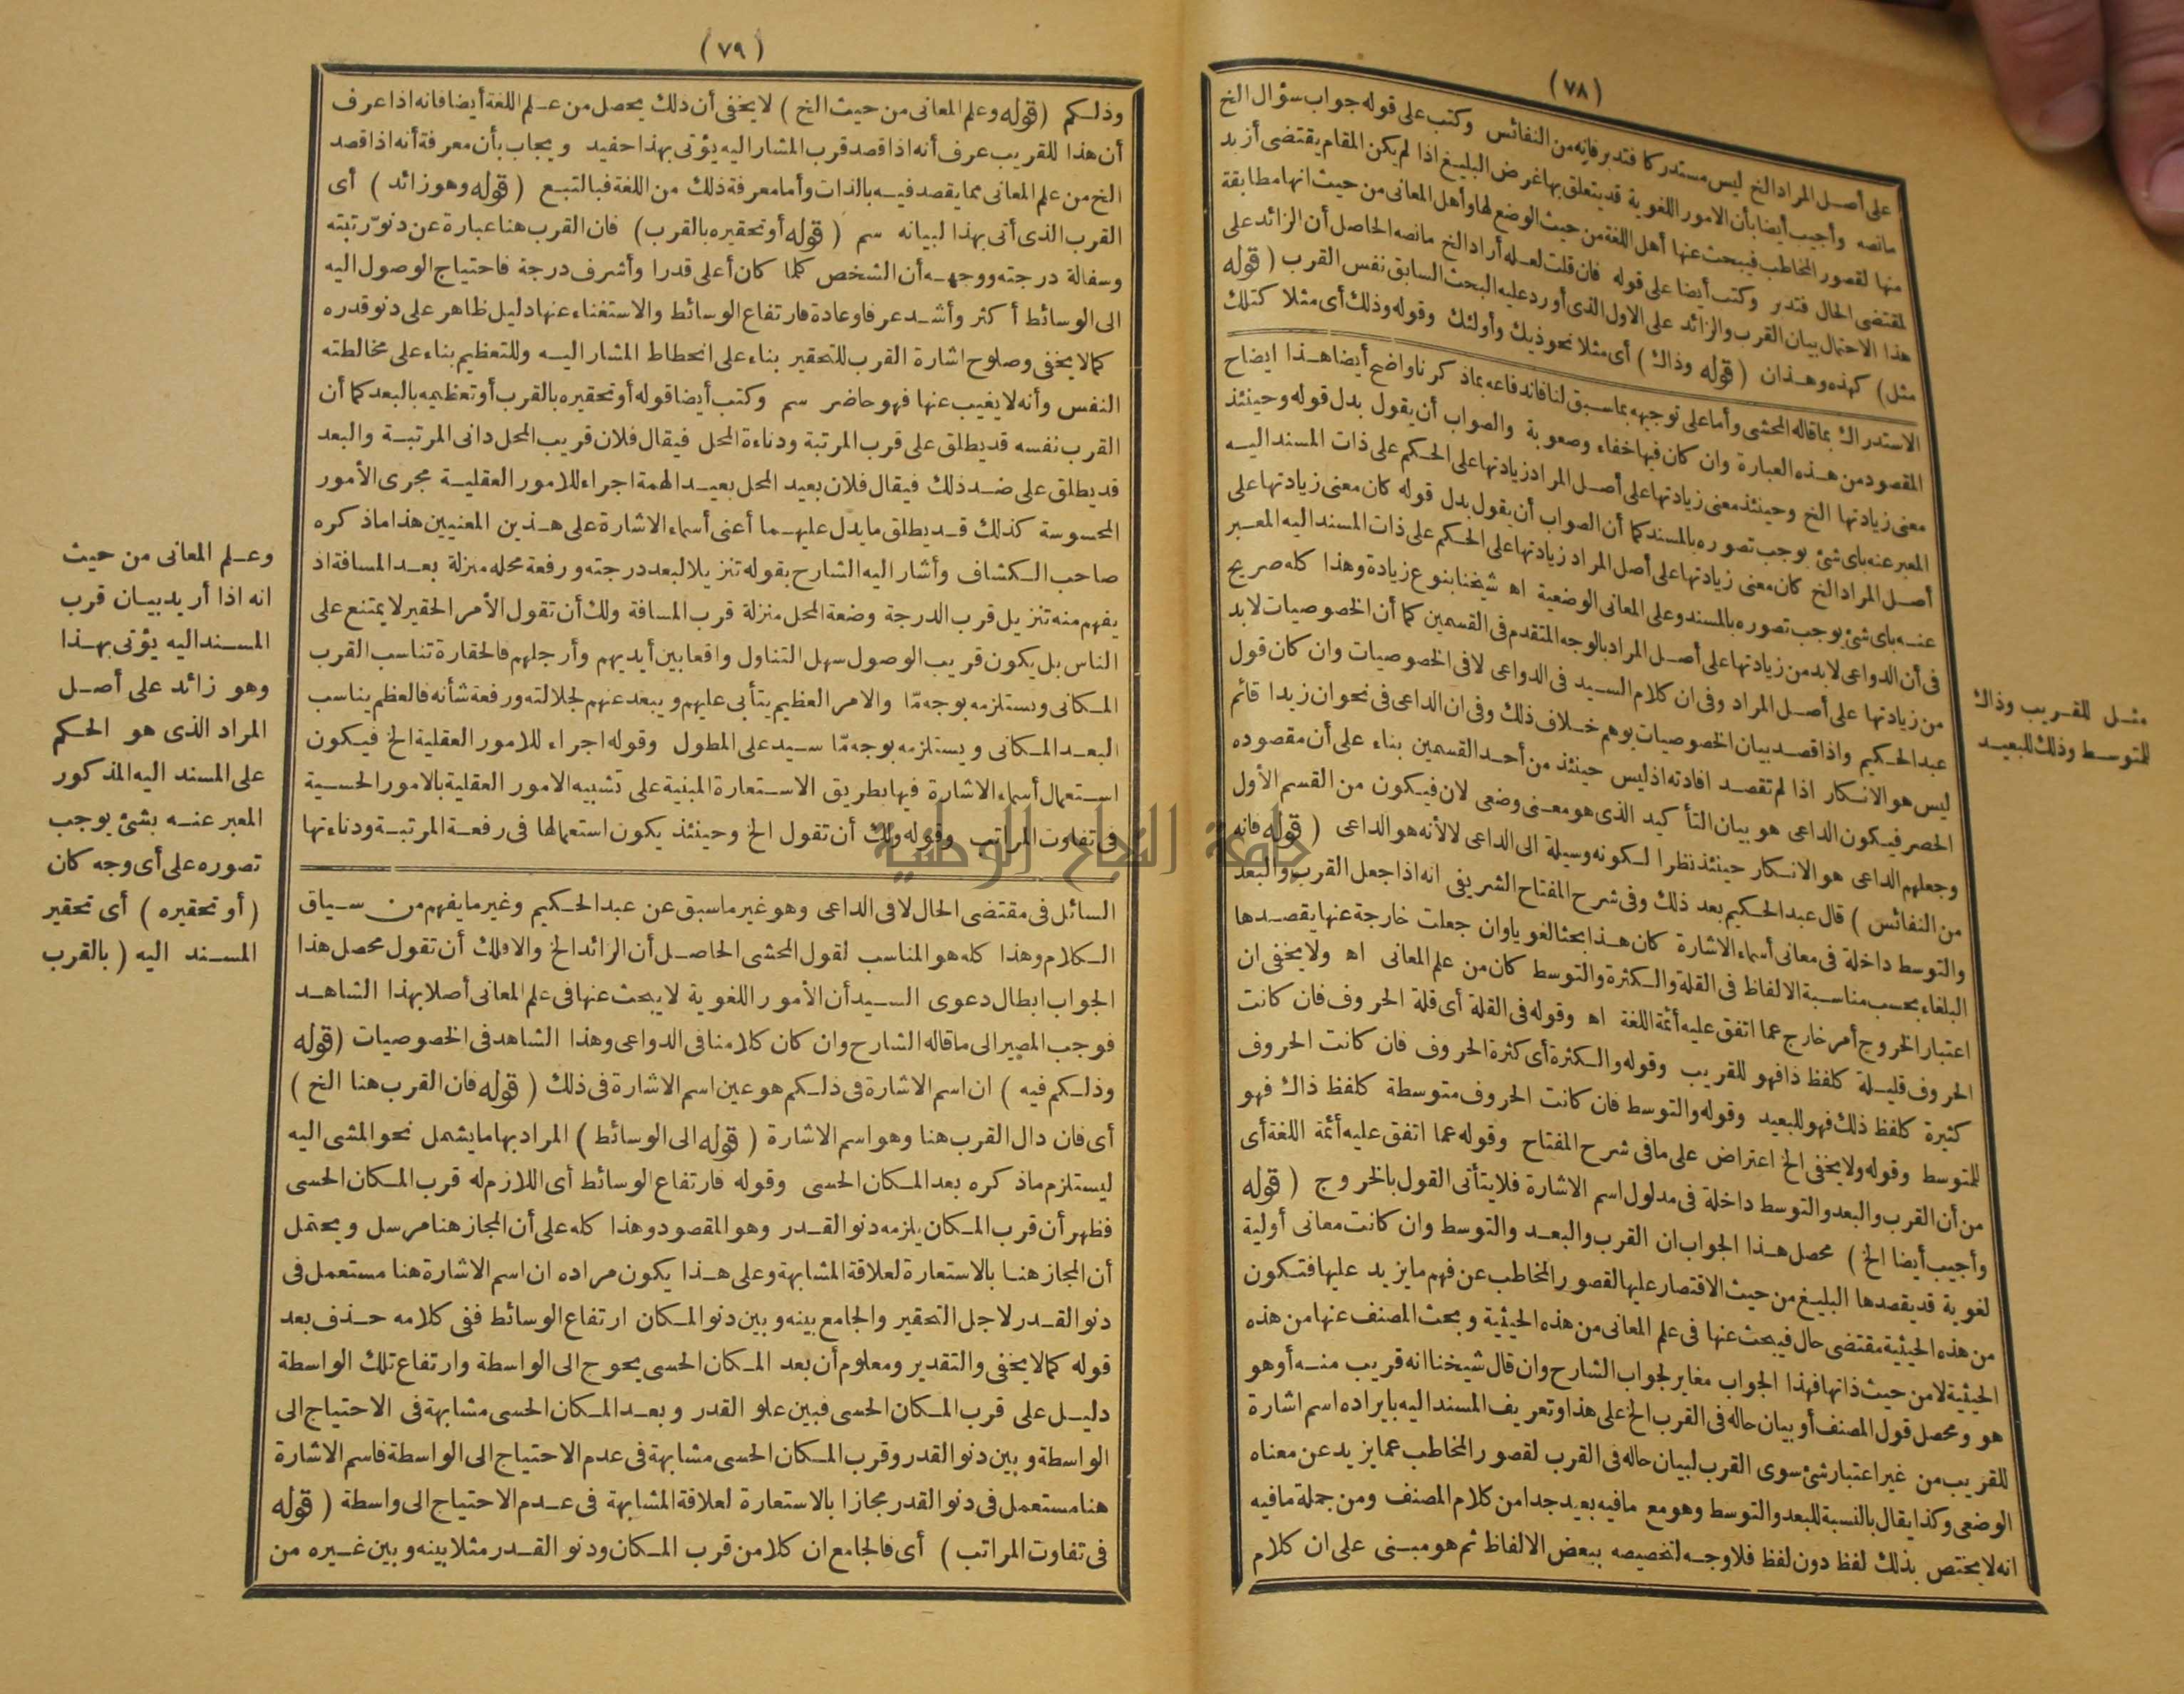 (٧٨)
على أصل المراد الخ ليس مستدركا فتدبر فانه من النفائس وكتب على قوله جواب سؤال الخ
مانصه وأجيب أيضا بأن الامور اللغوية قد يتعلق بها غرض البليغ اذا لم يكن المقام يقتضى أزيد
منها لقصور المخاطب فيبحث عنها أهل اللغة من حيث الوضع لها وأهل المعانى من حيث انها مطابقة
لمقتضى الحال فتدبر وكتب أيضا على قوله فان قلت لعله أراد الخ مانصه الحاصل أن الزائد على
هذا الاحتمال بيان القرب والزائد على الاول الذى أورد عليه البحث السابق نفس القرب (قوله
مثل) كهذه وهذان (قوله وذاك) أى مثلا نحو ذيك وأولئك وقوله وذلك أى مثلا كتلك
الاستدراك بما قاله المحشى وأما على توجيهه بما سبق لنا فاندفاعه بما ذكرنا واضح أيضا هذا ايضاح
المقصود من هذه العبارة وان كان فيها خفاء وصعوبة والصواب أن يقول بدل قوله وحينئذ
معنى زيادتها الخ وحينئذ معنى زيادتها على أصل المراد زيادتها على الحكم على ذات المسند اليه
المعبر عنه باى شئ يوجب تصوره بالمسند كما أن الصواب أن يقول بدل قوله كان معنى زيادتها على
أصل المراد الخ كان معنى زيادتها على أصل المراد زيادتها على الحكم على ذات المسند اليه المعبر
عنه باى شئ يوجب تصوره بالمسند وعلى المعانى الوضعية اه شيخنا بنوع زيادة وهذا كله صريح
فى أن الدواعى لابد من زيادتها على أصل المراد بالوجه المتقدم فى القسمين كما أن الخصوصيات لابد
من زيادتها على أصل المراد وفى ان كلام السيد فى الدواعى لا فى الخصوصيات وان كان قول
عبد الحكيم واذا قصد بيان الخصوصيات يوهم خلاف ذلك وفى ان الداعى فى نحو ان زيدا قائم
ليس هو الانكار اذا لم تقصد افادته اذ ليس حينئذ من أحد القسمين بناء على أن مقصوده
الحصر فيكون الداعى هو بيان التأكيد الذى هو معنى وضعى لان فيكون من القسم الأول
وجعلهم الداعى هو الانكار حينئذ نظرا لكونه وسيلة الى الداعى لا لأنه هو الداعى (قوله فانه
من النفائس) قال عبد الحكيم بعد ذلك وفى شرح المفتاح الشريفى انه اذا جعل القرب والبعد
والتوسط داخلة فى معانى أسماء الاشارة كان هذا بحثا لغويا وان جعلت خارجة عنها يقصدها
البلغاء بحسب مناسبة الالفاظ فى القلة والكثرة والتوسط كان من علم المعانى اه ولا يخفى ان
اعتبار الخروج أمر خارج عما اتفق عليه أئمة اللغة اه وقوله فى القلة أى قلة الحروف فان كانت
الحروف قليلة كلفظ ذا فهو للقريب وقوله والكثرة أى كثرة الحروف فان كانت الحروف
كثيرة كلفظ ذلك فهو للبعيد وقوله والتوسط فان كانت الحروف متوسطة كلفظ ذاك فهو
للمتوسط وقوله ولا يخفى الخ اعتراض على ما فى شرح المفتاح وقوله عما اتفق عليه أئمة اللغة أى
من أن القرب والبعد والتوسط داخلة فى مدلول اسم الاشارة فلا يتأتى القول بالخروج (قوله
وأجيب أيضا الخ) محصل هذا الجواب ان القرب والبعد والتوسط وان كانت معانى أولية
لغوية قد يقصدها البليغ من حيث الاقتصار عليها لقصور المخاطب عن فهم ما يزيد عليها فتكون
من هذه الحيثية مقتضى حال فيبحث عنها فى علم المعانى من هذه الحيثية وبحث المصنف عنها من هذه
الحيثية لا من حيث ذاتها فهذا الجواب مغاير لجواب الشارح وان قال شيخنا انه قريب منه أو هو
هو ومحصل قول المصنف أو بيان حاله فى القرب الخ على هذا وتعريف المسند اليه بايراده اسم اشارة
للقريب من غير اعتبار شئ سوى القرب لبيان حاله فى القرب لقصور المخاطب عما يزيد عن معناه
الوضعى وكذا يقال بالنسبة للبعد والتوسط وهو مع ما فيه بعيد جدا من كلام المصنف ومن جملة ما فيه
انه لا يختص بذلك لفظ دون لفظ فلا وجه لتخصيصه ببعض الالفاظ ثم هو مبنى على ان كلام
مثل للقريب وذاك
للمتوسط وذلك للبعيد
(٧٩)
وذلكم (قوله وعلم المعانى من حيث الخ) لا يخفى أن ذلك يحصل من علم اللغة أيضا فانه اذا عرف
أن هذا للقريب عرف أنه اذا قصد قرب المشار اليه يؤتى بهذا حفيد ويجاب بأن معرفة أنه اذا قصد
الخ من علم المعانى مما يقصد فيه بالذات وأما معرفة ذلك من اللغة فبالتبع (قوله وهو زائد) أى
القرب الذى أتى بهذا لبيانه سم (قوله أو تحقيره بالقرب) فان القرب هنا عبارة عن دنو رتبته
وسفالة درجته ووجهه أن الشخص كلما كان أعلى قدرا وأشرف درجة فاحتياج الوصول اليه
الى الوسائط أكثر وأشد عرفا وعادة فارتفاع الوسائط والاستغناء عنها دليل ظاهر على دنو قدره
كما لا يخفى وصلوح اشارة القرب للتحقير بناء على انحطاط المشار اليه وللتعظيم بناء على مخالطته
النفس وأنه لا يغيب عنها فهو حاضر سم وكتب أيضا قوله أو تحقيره بالقرب أو تعظيمه بالبعد كما أن
القرب نفسه قد يطلق على قرب المرتبة ودناءة المحل فيقال فلان قريب المحل دانى المرتبة والبعد
قد يطلق على ضد ذلك فيقال فلان بعيد المحل بعيد الهمة اجراء للامور العقلية مجرى الأمور
المحسوسة كذلك قد يطلق ما يدل عليهما أعنى أسماء الاشارة على هذين المعنيين هذا ما ذكره
صاحب الكشاف وأشار اليه الشارح بقوله تنزيلا لبعد درجته ورفعة محله منزلة بعد المسافة اذ
يفهم منه تنزيل قرب الدرجة وضعة المحل منزلة قرب المسافة ولك أن تقول الأمر الحقير لا يمتنع على
الناس بل يكون قريب الوصول سهل التناول واقعا بين أيديهم وأرجلهم فالحقارة تناسب القرب
المكانى وتستلزمه بوجه مّا والامر العظيم يتأبى عليهم ويبعد عنهم لجلالته ورفعة شأنه فالعظم يناسب
البعد المكانى ويستلزمه بوجه مّا سيد على المطول وقوله اجراء للامور العقلية الخ فيكون
استعمال أسماء الاشارة فيها بطريق الاستعارة المبنية على تشبيه الامور العقلية بالامور الحسية
فى تفاوت المراتب وقوله ولك أن تقول الخ وحينئذ يكون استعمالها فى رفعة المرتبة ودناءتها
السائل فى مقتضى الحال لا فى الداعى وهو غير ما سبق عن عبد الحكيم وغير ما يفهم من سياق
الكلام وهذا كله هو المناسب لقول المحشى الحاصل أن الزائد الخ والا فلك أن تقول محصل هذا
الجواب ابطال دعوى السيد أن الأمور اللغوية لا يبحث عنها فى علم المعانى أصلا بهذا الشاهد
فوجب المصير الى ما قاله الشارح وان كان كلامنا فى الدواعى وهذا الشاهد فى الخصوصيات (قوله
وذلكم فيه) ان اسم الاشارة فى ذلكم هو عين اسم الاشارة فى ذلك (قوله فان القرب هنا الخ)
أى فان دال القرب هنا وهو اسم الاشارة (قوله الى الوسائط) المراد بها ما يشمل نحو المشى اليه
ليستلزم ما ذكره بعد المكان الحسى وقوله فارتفاع الوسائط أى اللازم له قرب المكان الحسى
فظهر أن قرب المكان يلزمه دنو القدر وهو المقصود وهذا كله على أن المجاز هنا مرسل ويحتمل
أن المجاز هنا بالاستعارة لعلاقة المشابهة وعلى هذا يكون مراده ان اسم الاشارة هنا مستعمل فى
دنو القدر لاجل التحقير والجامع بينه وبين دنو المكان ارتفاع الوسائط ففى كلامه حذف بعد
قوله كما لا يخفى والتقدير ومعلوم أن بعد المكان الحسى يحوج الى الواسطة وارتفاع تلك الواسطة
دليل على قرب المكان الحسى فبين علو القدر وبعد المكان الحسى مشابهة فى الاحتياج الى
الواسطة وبين دنو القدر وقرب المكان الحسى مشابهة فى عدم الاحتياج الى الواسطة فاسم الاشارة
هنا مستعمل فى دنو القدر مجازا بالاستعارة لعلاقة المشابهة فى عدم الاحتياج الى واسطة (قوله
فى تفاوت المراتب) أى فالجامع ان كلا من قرب المكان ودنو القدر مثلا بينه وبين غيره من
وعلم المعانى من حيث
انه اذا أريد بيان قرب
المسند اليه يؤتى بهذا
وهو زائد على أصل
المراد الذى هو الحكم
على المسند اليه المذكور
المعبر عنه بشئ يوجب
تصوره على أى وجه كان
(أو تحقيره) أى تحقير
المسند اليه (بالقرب
جامعة النجاح الوطنية